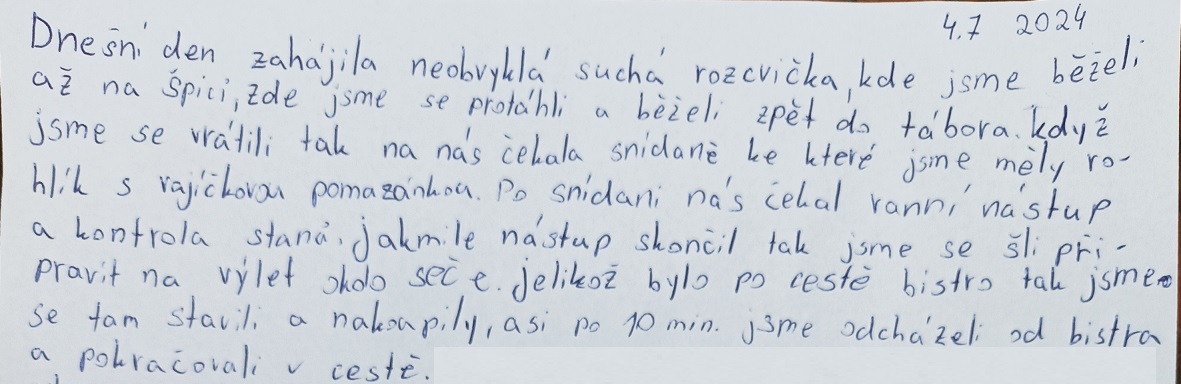 4.7 2024
Dnešní den zahájila neobvyklá suchá rozcvička, kde jsme běželi
až na špici, zde jsme se protáhli a běželi zpět do tábora. když
jsme se vrátili tak na nás čekala snídaně ke které jsme měly ro-
hlík s rajíčkovou pomazánkou. Po snídani nás čekal ranní nástup
a kontrola stanů. jakmile nástup skončil tak jsme se šli při-
pravit na výlet okolo seče. jelikož bylo po cestě bistro tak jsme
se tam stavili a nakoupily, asi po 10 min. jsme odcházeli od bistra
a pokračovali v cestě.